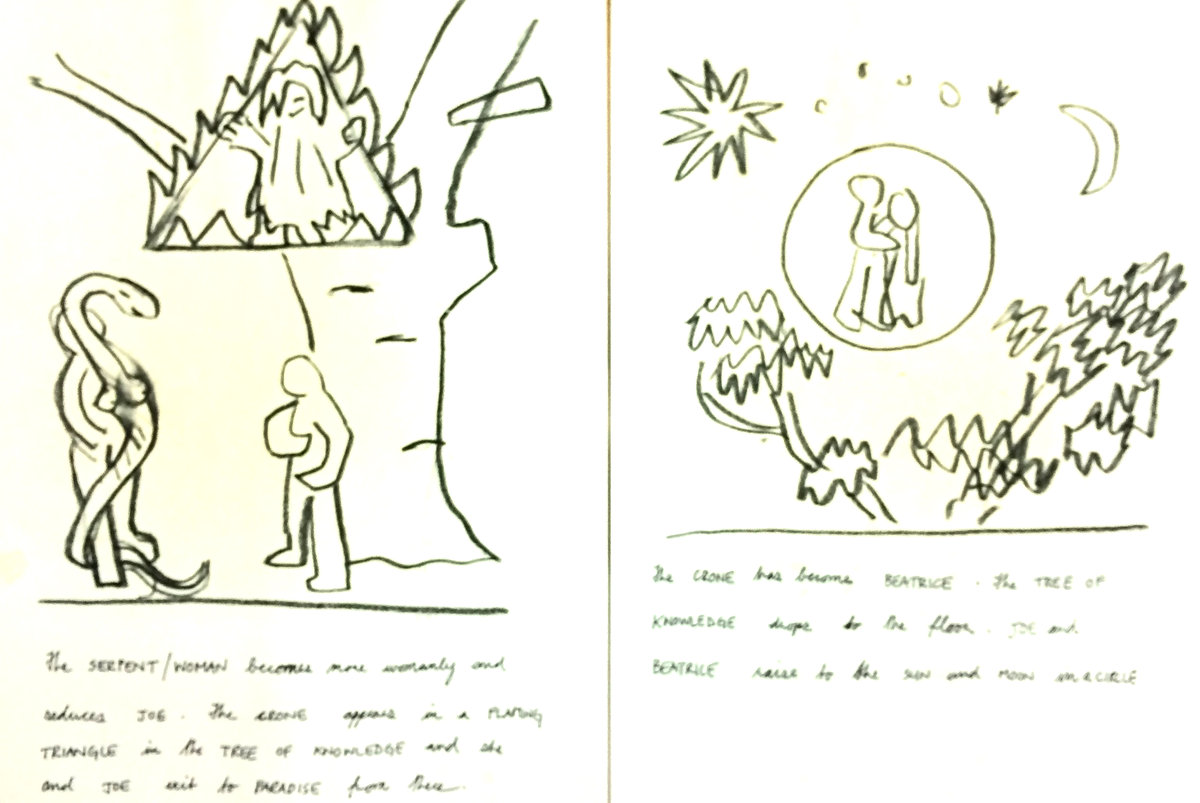 The SERPENT/WOMAN becomes more womanly and
seduces JOE. The CRONE appears in a FLAMING
TRIANGLE in the TREE OF KNOWLEDGE and she
and JOE exit to PARADISE from there.
The CRONE has become BEATRICE. The TREE OF
KNOWLEDGE drops to the floor. JOE and
BEATRICE raise to the SUN and MOON in a CIRCLE